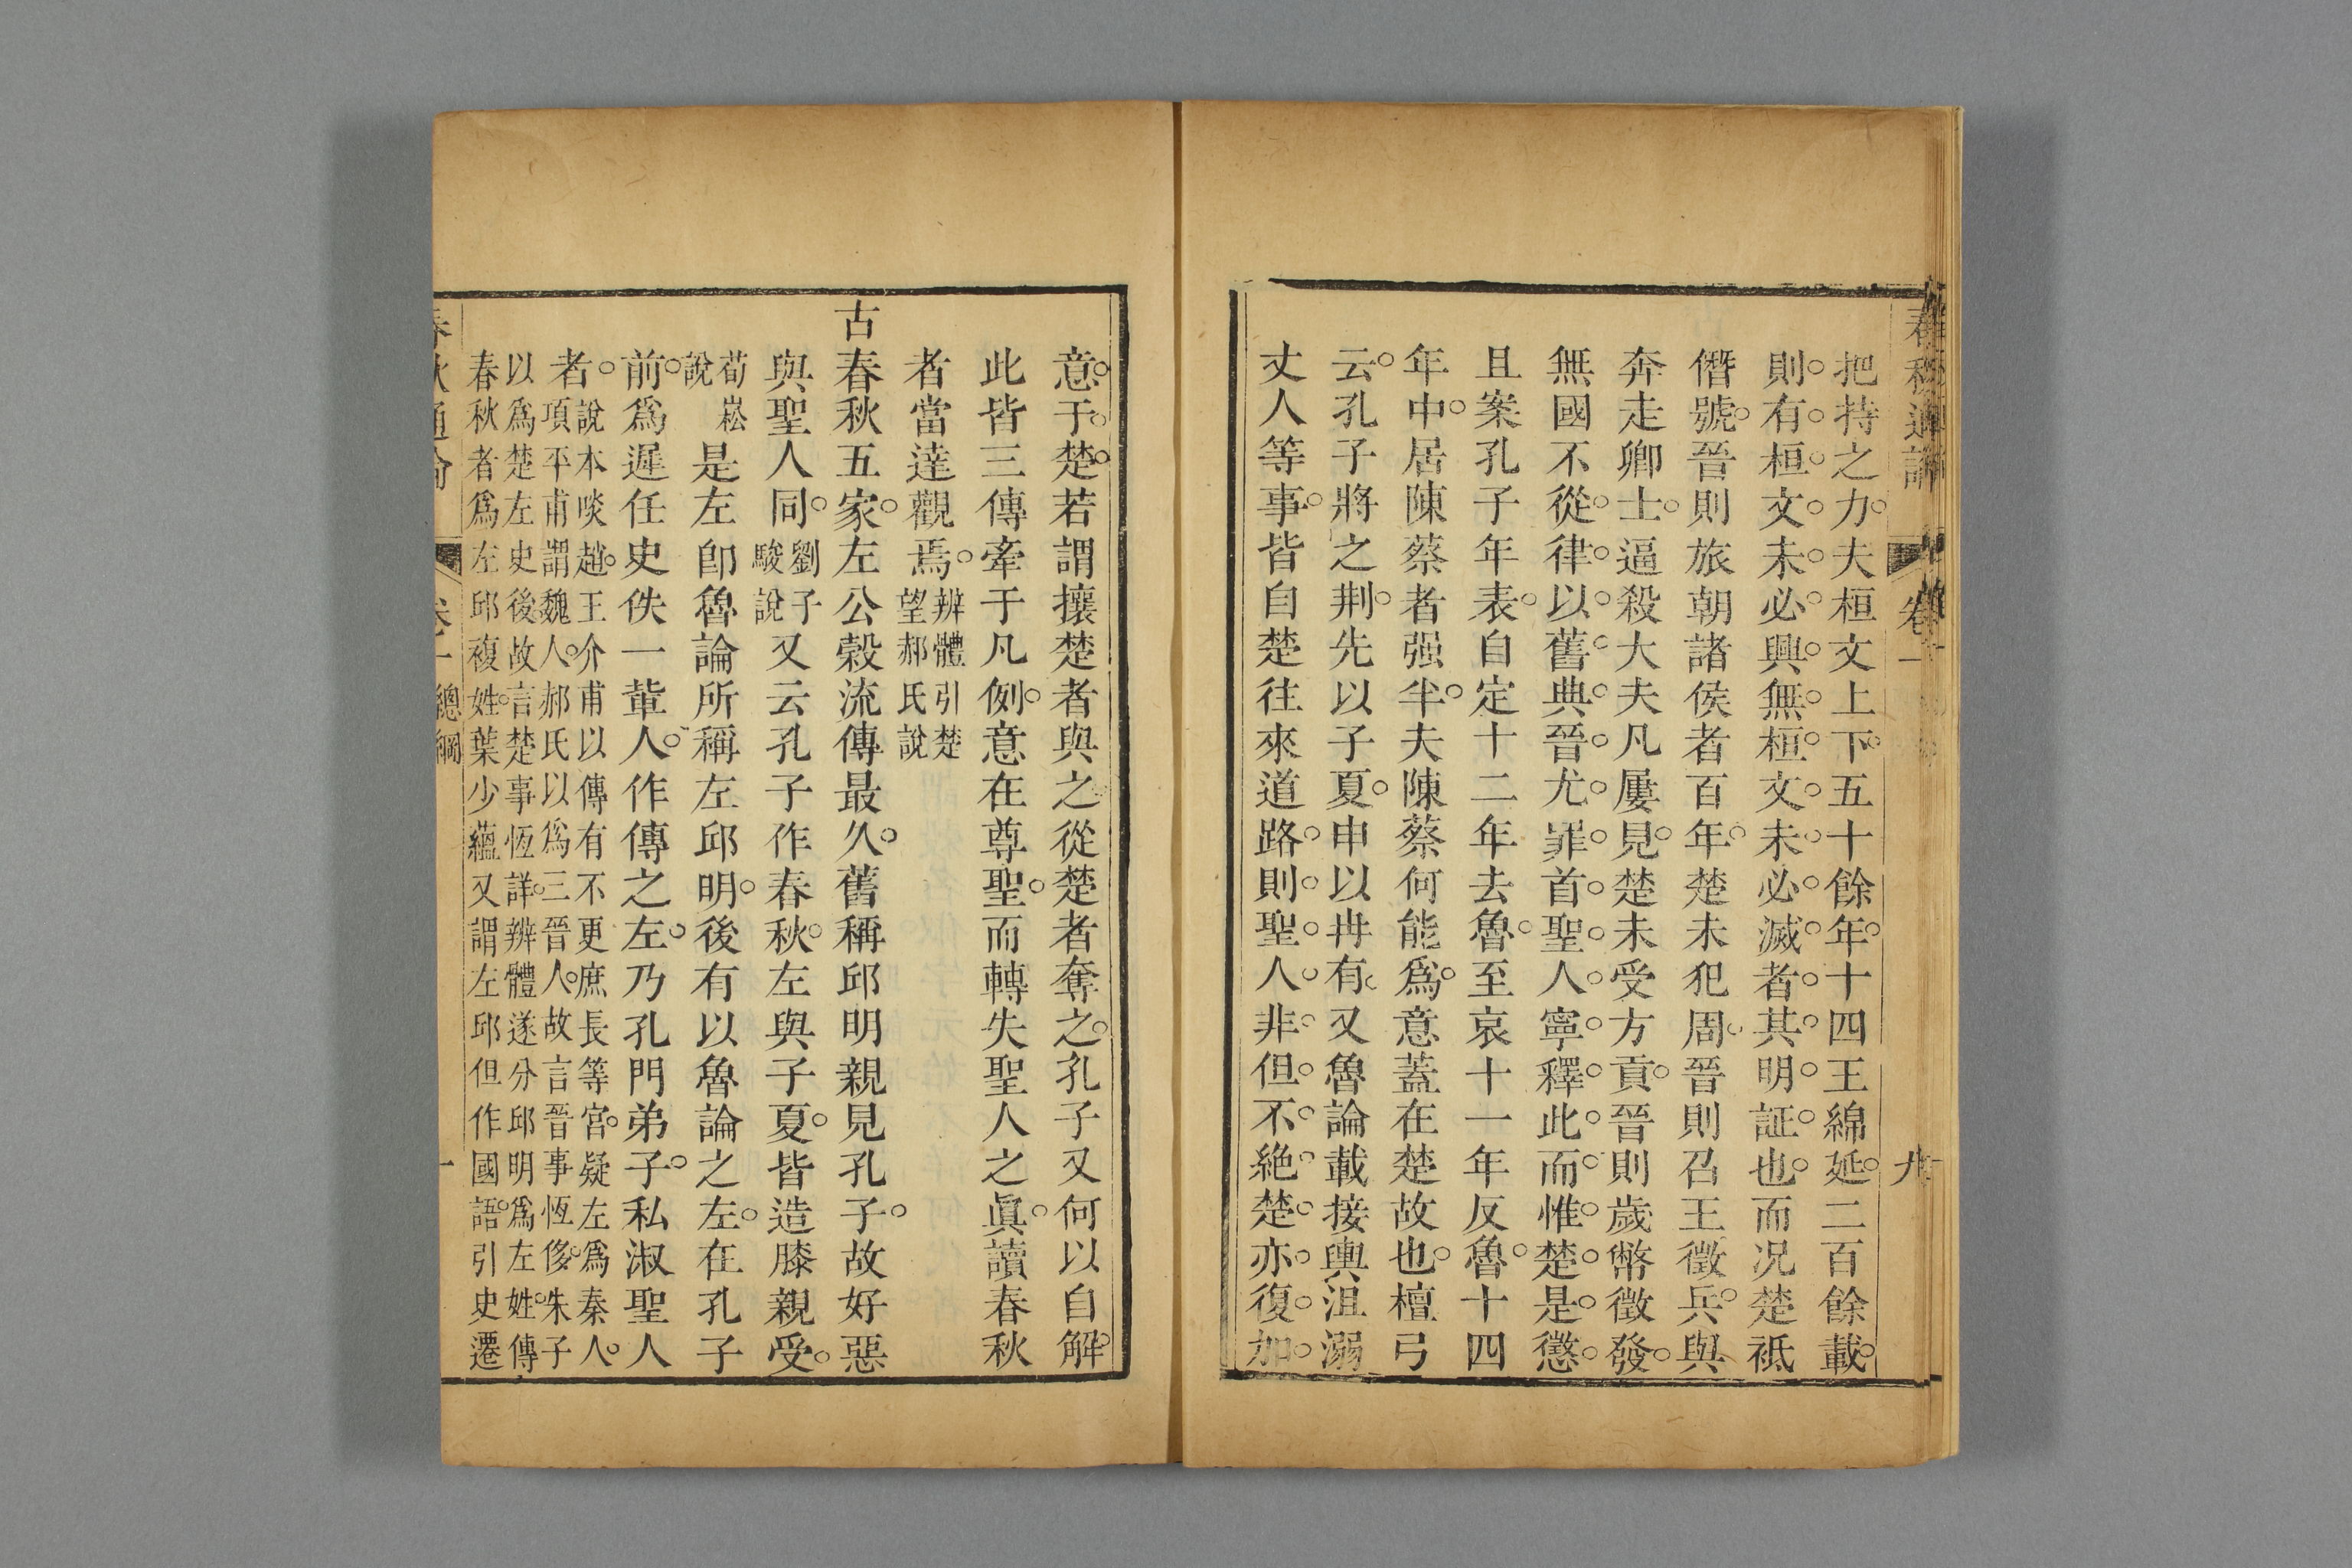 把持之力。夫桓文上下五十餘年。十四王綿延。二百餘載。
則。有。桓。文。未。必。興。無。桓。文。未。必。滅。者。其。明。証。也。而况楚祗
僭號。晉則旅朝諸侯者百年。楚未犯周。晉則召王徵兵。與
奔走卿士。逼殺大夫凡屢見。楚未受方貢。晉則歲幣徵發。
無國不從。律。以。舊。典。晉。尤。罪。首。聖。人。寧。釋。此。而。惟。楚。是。懲。
且案孔子年表。自定十二年去魯。至哀十一年反魯。十四
年中。居陳蔡者强半。夫陳蔡何能爲。意蓋在楚故也。檀弓
云。孔子將之荆。先以子夏。申以冉有。又魯論載接輿沮溺
丈人等事。皆自楚往來道路。則。聖。人。非。但。不。絶。楚。亦。復。加。
意。于。楚。若謂攘楚者與之從楚者奪之。孔子又何以自解。
此皆三傳牽于凡例。意在尊聖。而轉失聖人之眞。讀春秋
者當達觀焉。辨體引楚望郝氏說
古春秋五家。左公榖流傳最久。舊稱邱明親見孔子。故好惡
與聖人同。劉子駿說又云孔子作春秋。左與子夏。皆造膝親受。
荀崧說是左卽魯論所稱左邱明。後有以魯論之左。在孔子
前。爲遲任史佚一輩人。作傳之左。乃孔門弟子。私淑聖人
者。說本啖趙。王介甫以傳有不更庶長等官。疑左爲秦人。項平甫謂魏人。郝氏以爲三晉人。故言晉事恆侈。朱子
以爲楚左史後故言楚事恆詳。辨體遂分邱明爲左姓。傳春秋者爲左邱複姓。葉少蘊又謂左邱但作國語。引史遷
春秋通論 卷一 總綱
春秋通論 卷一